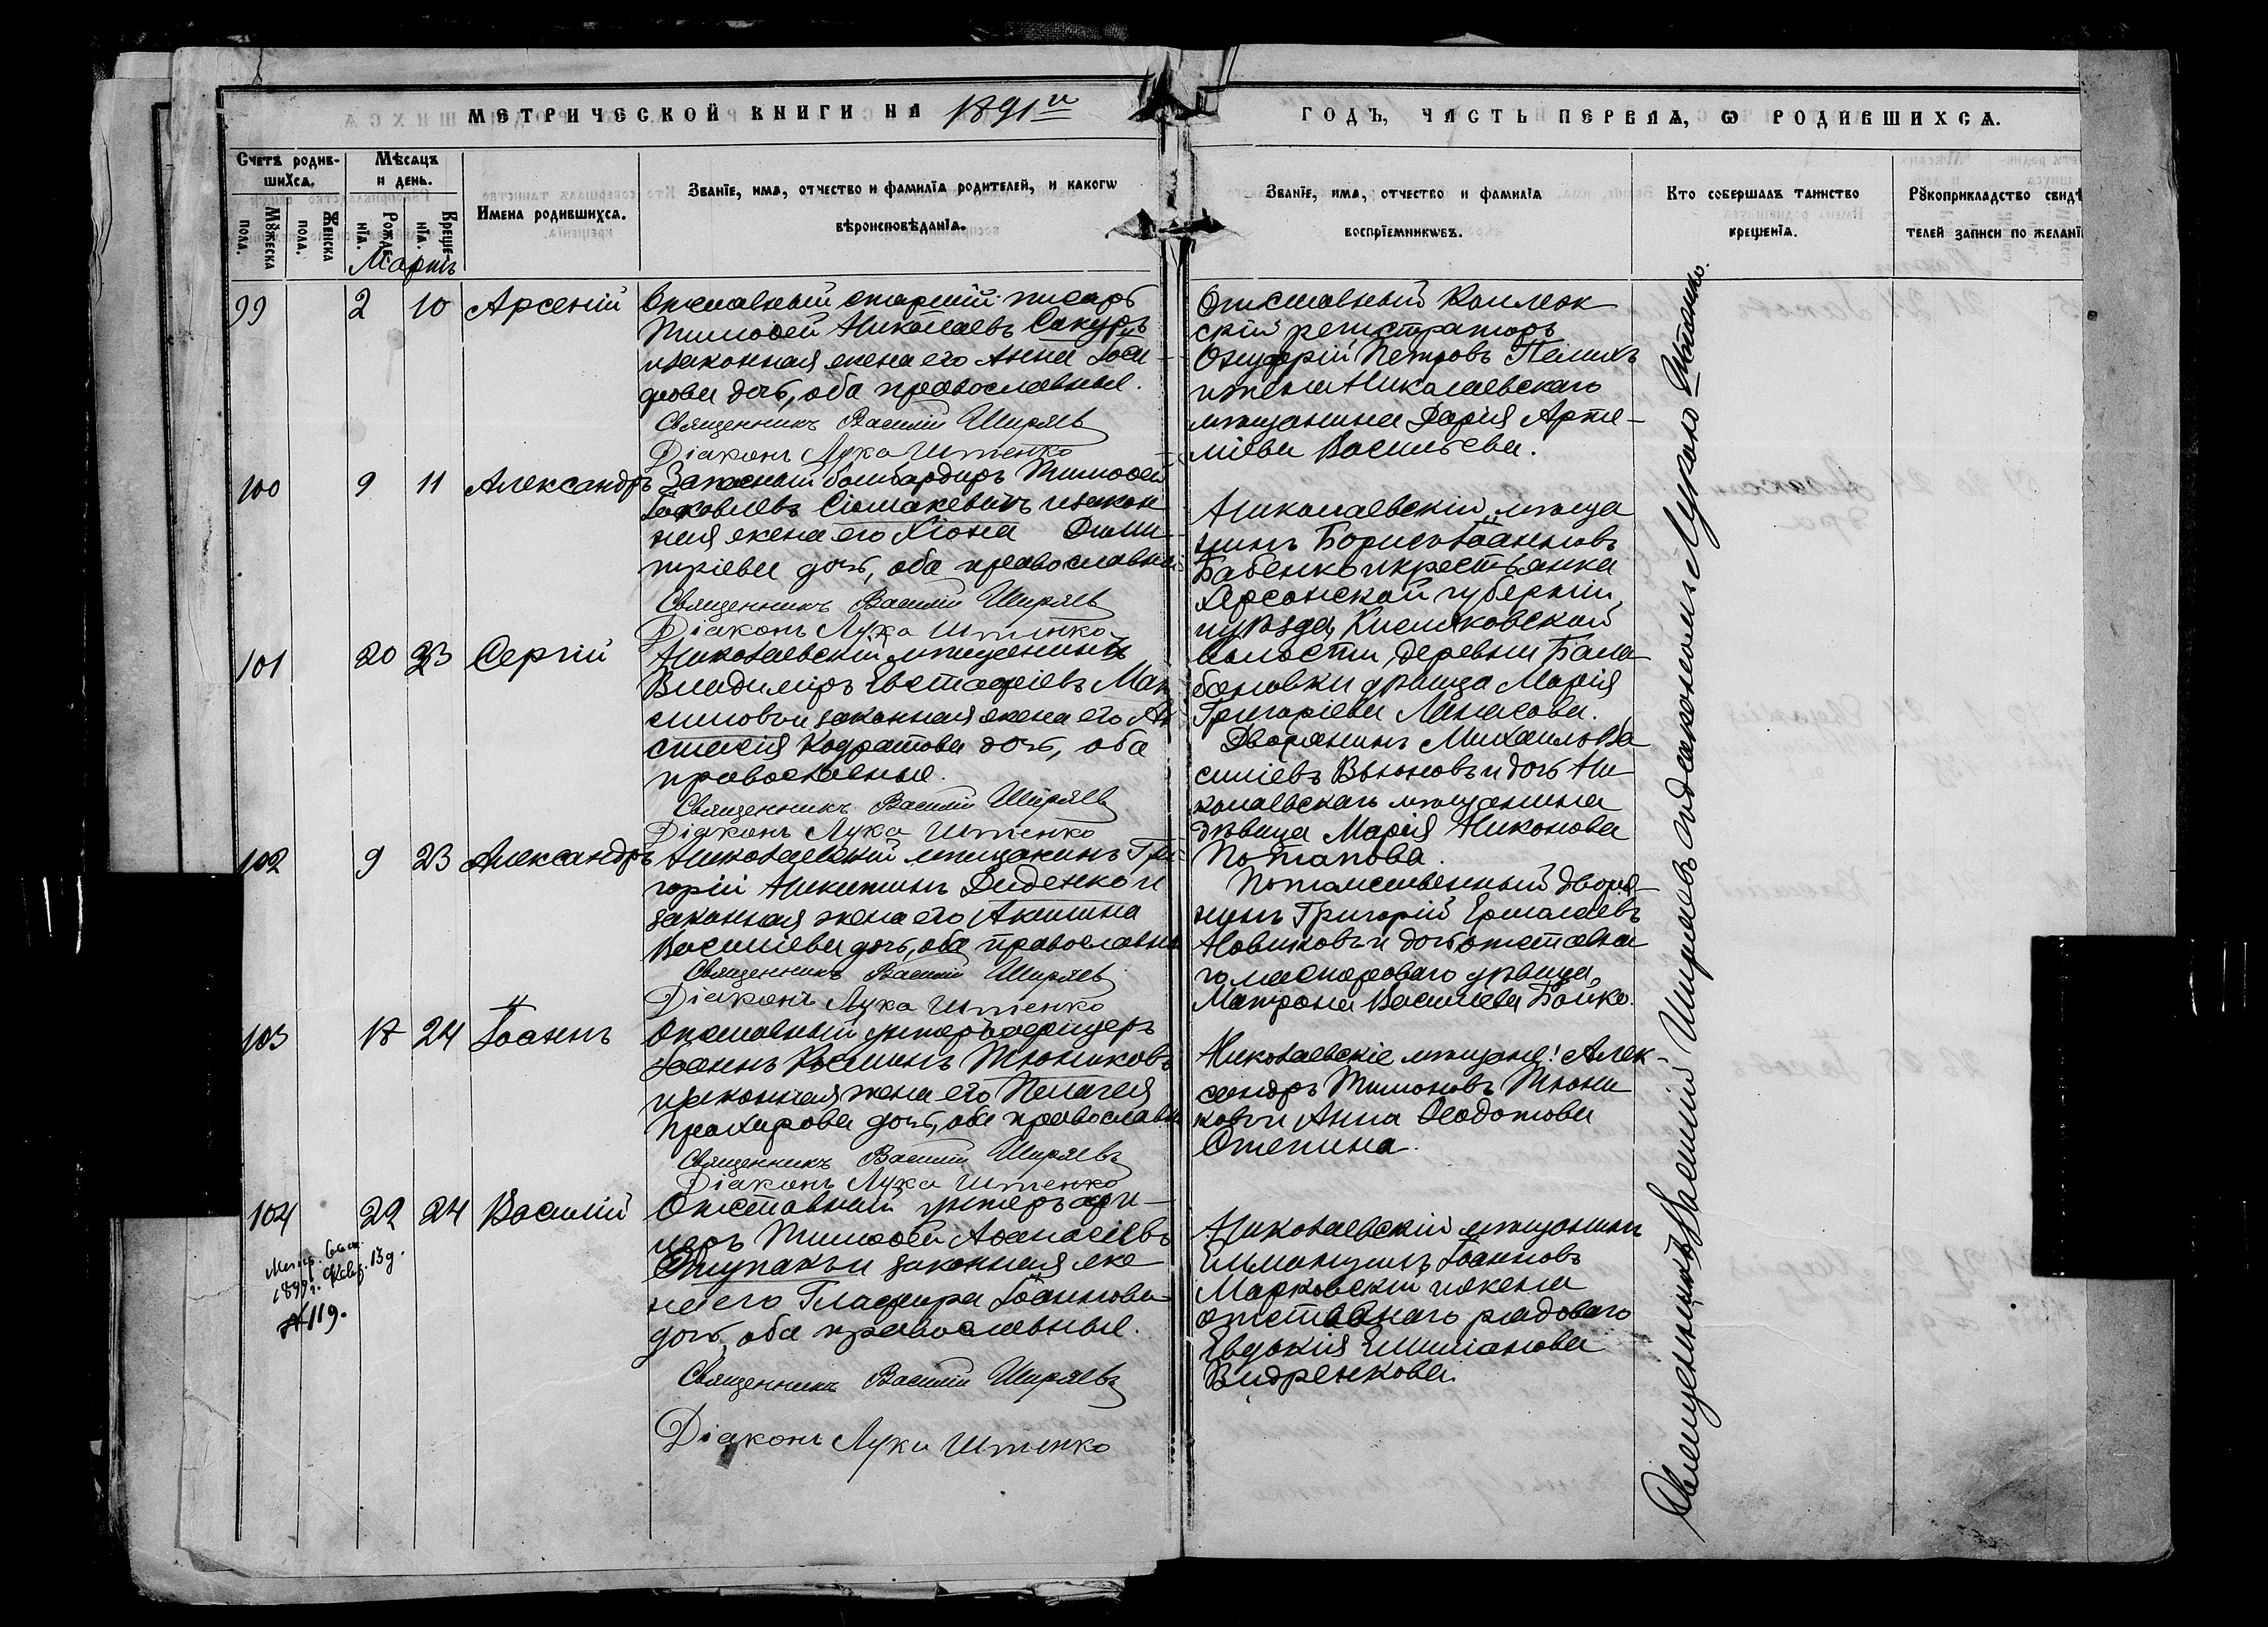 МЕТРИЧЕСКОЙ КНИГИ НА 1891й
ГОДЪ, ЧАСТЬ ПЕРВАѦ, Ѡ РОДИВШИХСѦ.
Счетъ родив-
шихсѧ.
Мѣсѧцъ
и день.
Мꙋжеска
пола.
Женска
пола.
Рожде-
нїѧ.
Креще-
нїѧ.
Имена родившихсѧ.
Званїе, имѧ, отчество и фамилїѧ родителей, и какогѡ
вѣроисповѣданїѧ.
Званїе, имѧ, отчество и фамилїѧ
воспрїемникѡвъ.
Кто совершалъ таинство
крещенїѧ.
Рꙋкоприкладство свидѣ
телей записи по желанї
Мартъ
99 2 10 Арсеній
Отставный старшій писарь
Тимоѳей Николаевъ Сакуръ
и законная жена его Анна Іоси-
фова дочь, оба православные.
Священникъ Василій Ширяевъ
Діаконъ Лука Штенко
Отставный Коллеж
скій регистраторъ
Онуфрій Петровъ Пелихъ
и жена Николаевскаго
мѣщанина Дарія Арте-
міева Васильева.
100 9 11 Александръ
Запасный бомбардиръ Тимоѳей
Іаковлевъ Сіомакевичъ и закон
ная жена его Хіона Дими-
тріева дочь, оба православные
Священникъ Василій Ширяевъ
Діаконъ Лука Штенко
Николаевскій мѣща
нинъ Борисъ Іоанновъ
Бабенко и крестьянка
Херсонской губерніи
и уѣзда, Кисляковской
волости, деревни Бала
бановки дѣвица Марія
Григоріева Манасова.
101 20 23 Сергій
Николаевскій мѣщанинъ
Владиміръ Евстафіевъ Мак
симовъ и законная жена его Ана
стасія Кодратова дочь, оба
православные.
Священникъ Василій Ширяевъ
Діаконъ Лука Штенко
Дворянинъ Михаилъ Ва
силіевъ Вьюновъ и дочь Ни
колаевскаго мѣщанина
дѣвица Марія Никонова
Потапова.
102 9 23 Александръ
Николаевскій мѣщанинъ Гри-
горій Никитинъ Диденко и
законная жена его Акилина
Василіева дочь, оба православные
Священникъ Василій Ширяевъ
Діаконъ Лука Штенко
Потомственный дворя-
нинъ Григорій Ермолаевъ
Новиковъ и дочь отставна
го мастероваго дѣвица
Матрона Василіева Бойко.
103 18 24 Іоаннъ
Отставный унтеръ офицеръ
Іоаннъ Космннъ Тюниковъ
и законная жена его Пелагея
Прохорова дочь, оба православные
Священникъ Василій Ширяевъ
Діаконъ Лука Штенко
Николаевскіе мѣщане: Алек-
сандръ Тимоновъ Тюни
ковъ и Анна Ѳеодотова
Степина.
104 22 24 Василій
Отставный унтеръ офи-
церъ Тимоѳей Аѳанасіевъ
Ступакъ и законная же
на его Гласфира Іоаннова
дочь, оба православные.
Священникъ Василій Ширяевъ
Діаконъ Лука Штенко
Николаевскій мѣщанинъ
Еммануилъ Іоанновъ
Марковскій и жена
отставнаго рядоваго
Евдокія Емиліанова
Видренкова.
1899 г. Февр. 13 д.
№ 119.
Священникъ Василій Ширяевъ съ діакономъ Лукою Штенко.